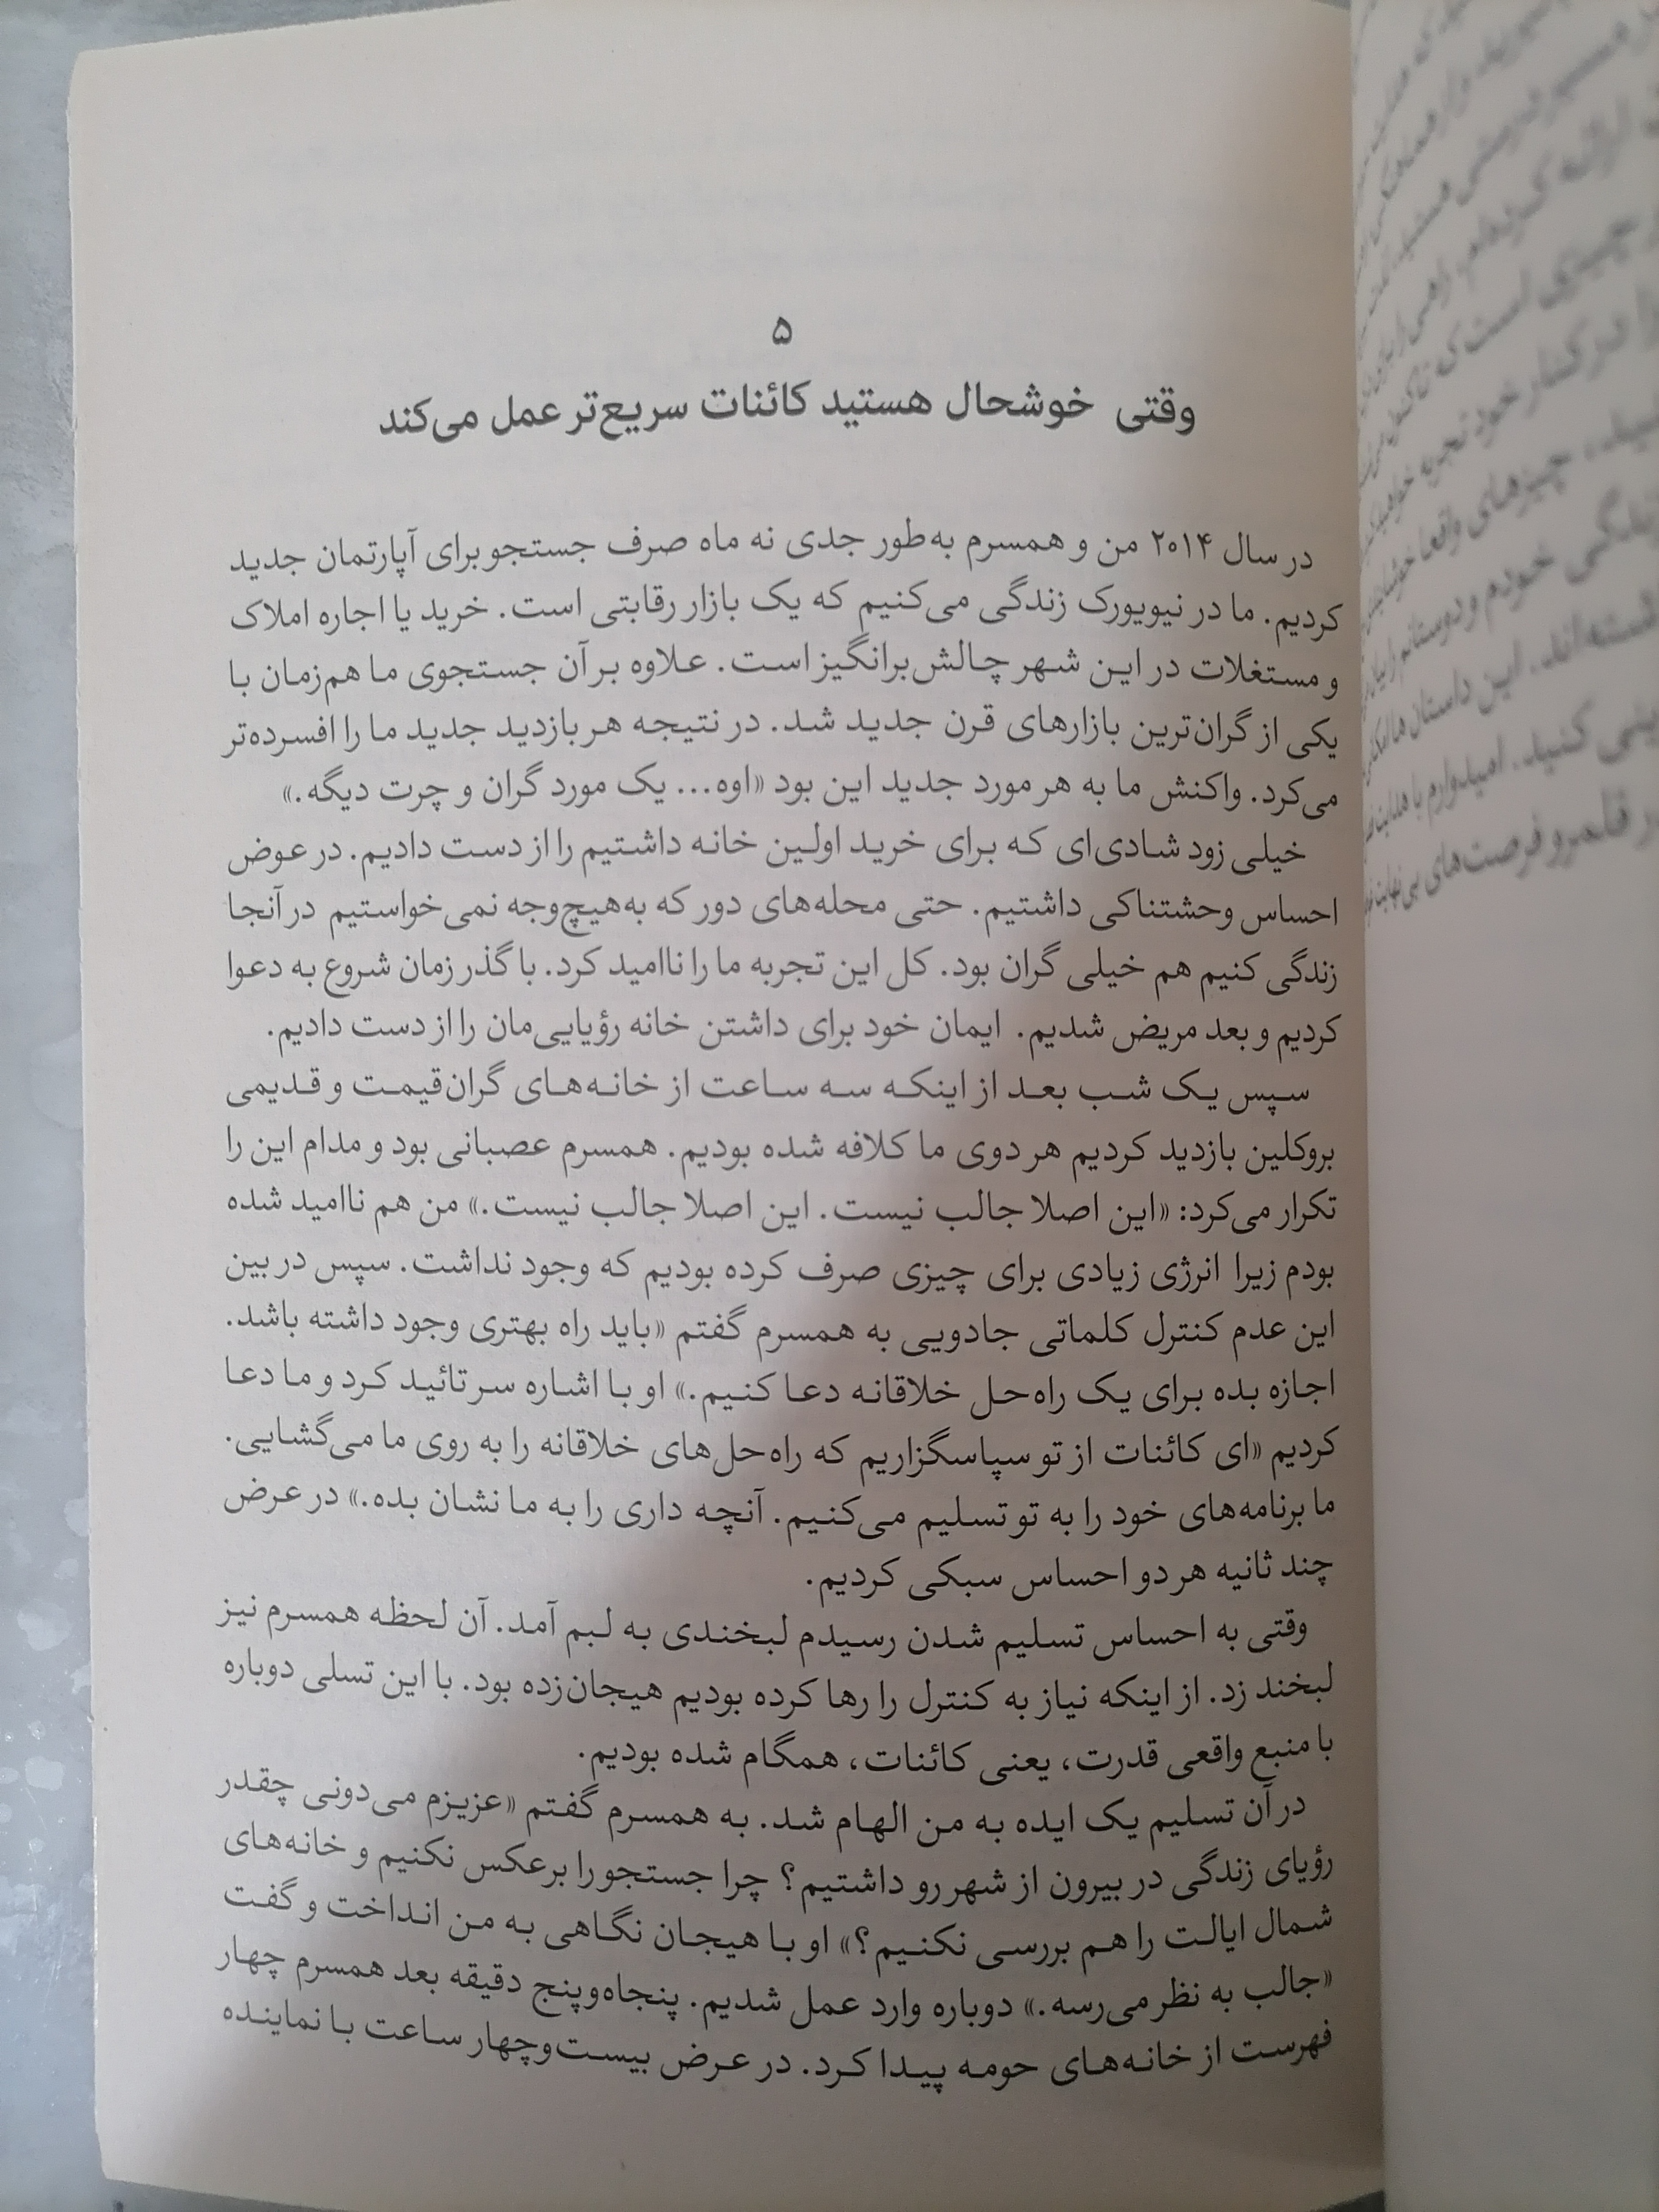 ۵
وقتی خوشحال هستید کائنات سریع‌تر عمل می‌کند
در سال ۲۰۱۴ من و همسرم به‌طور جدی نه ماه صرف جستجو برای آپارتمان جدید
کردیم. ما در نیویورک زندگی می‌کنیم که یک بازار رقابتی است. خرید یا اجاره املاک
و مستغلات در این شهر چالش‌برانگیز است. علاوه بر آن جستجوی ما هم‌زمان با
یکی از گران‌ترین بازارهای قرن جدید شد. در نتیجه هر بازدید جدید ما را افسرده‌تر
می‌کرد. واکنش ما به هر مورد جدید این بود «اوه... یک مورد گران و چرت دیگه.»
خیلی زود شادی‌ای که برای خرید اولین خانه داشتیم را از دست دادیم. در عوض
احساس وحشتناکی داشتیم. حتی محله‌های دور که به‌هیچ‌وجه نمی‌خواستیم در آنجا
زندگی کنیم هم خیلی گران بود. کل این تجربه ما را ناامید کرد. با گذر زمان شروع به دعوا
کردیم و بعد مریض شدیم. ایمان خود برای داشتن خانه رؤیایی‌مان را از دست دادیم.
سپس یک شب بعد از اینکه سه ساعت از خانه‌های گران‌قیمت و قدیمی
بروکلین بازدید کردیم هر دوی ما کلافه شده بودیم. همسرم عصبانی بود و مدام این را
تکرار می‌کرد: «این اصلا جالب نیست. این اصلا جالب نیست.» من هم ناامید شده
بودم زیرا انرژی زیادی برای چیزی صرف کرده بودیم که وجود نداشت. سپس در بین
این عدم کنترل کلماتی جادویی به همسرم گفتم «باید راه بهتری وجود داشته باشد.
اجازه بده برای یک راه‌حل خلاقانه دعا کنیم.» او با اشاره سر تائید کرد و ما دعا
کردیم «ای کائنات از تو سپاسگزاریم که راه‌حل‌های خلاقانه را به روی ما می‌گشایی.
ما برنامه‌های خود را به تو تسلیم می‌کنیم. آنچه داری را به ما نشان بده.» در عرض
چند ثانیه هر دو احساس سبکی کردیم.
وقتی به احساس تسلیم شدن رسیدم لبخندی به لبم آمد. آن لحظه همسرم نیز
لبخند زد. از اینکه نیاز به کنترل را رها کرده بودیم هیجان‌زده بود. با این تسلی دوباره
با منبع واقعی قدرت، یعنی کائنات، همگام شده بودیم.
در آن تسلیم یک ایده به من الهام شد. به همسرم گفتم «عزیزم می‌دونی چقدر
رؤیای زندگی در بیرون از شهر رو داشتیم؟ چرا جستجو را برعکس نکنیم و خانه‌های
شمال ایالت را هم بررسی نکنیم؟» او با هیجان نگاهی به من انداخت و گفت
«جالب به نظر می‌رسه.» دوباره وارد عمل شدیم. پنجاه‌وپنج دقیقه بعد همسرم چهار
فهرست از خانه‌های حومه پیدا کرد. در عرض بیست‌وچهار ساعت با نماینده